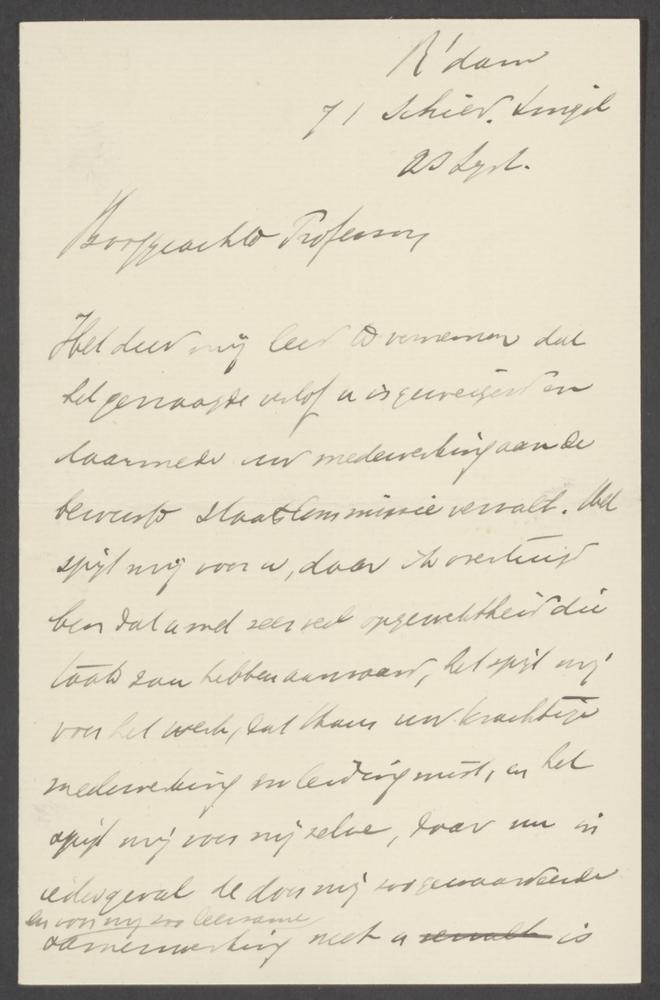 R'dam
71 Schied. Singel
25 Sept.
Hooggeachte Professor,
Het deed mij leed te vernemen dat
het gevraagde verlof u is geweigerd en
daarmede uw medewerking aan de
bewuste Staatscommissie vervalt. Het
spijt mij voor u, daar ik overtuigd
ben dat u met zeer veel opgewektheid die
taak zou hebben aanvaard, het spijt mij
voor het werk, dat thans uw krachtige
medewerking en leiding mist, en het
spijt mij voor mij zelve, daar nu in
iedergeval de door mij zoo gewaardeerde
en voor mij zoo leerzame
samenwerking met u vervalt is